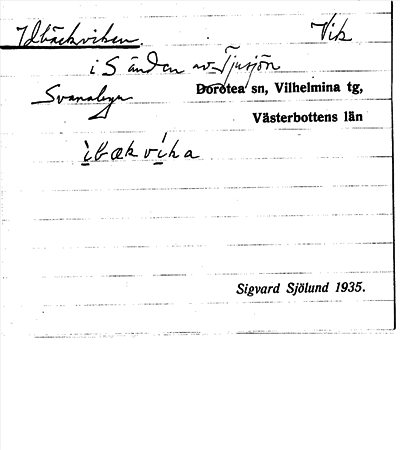 Idbäckviken. Vik
i S änden av Tjusjön
Svanabyn Dorotea sn, Vilhelmina tg,
Västerbottens län
ìbækvìka
Sigvard Sjölund 1935.